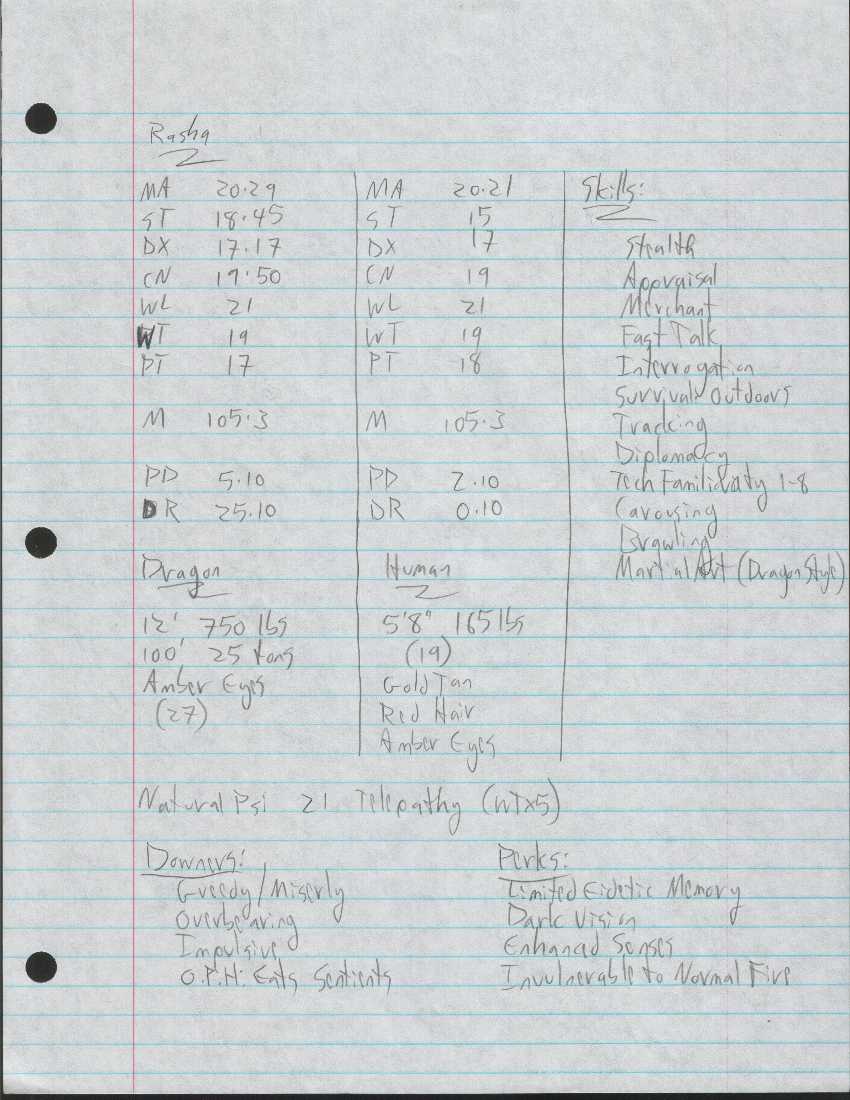 Rasha
MA 20.29
ST 18.45
DX 17.17
CN 19.50
WL 21
WT 19
PT 17
M 105.3
PD 5.10
DR 25.10
Dragon
12' 750 lbs
100' 25 tons
Amber Eyes
(27)
MA 20.21
ST 15
DX 17
CN 19
WL 21
WT 19
PT 18
M 105.3
PD 2.10
DR 0.10
Human
5'8" 165 lbs
(19)
Gold Tan
Red Hair
Amber Eyes
Skills:
Stealth
Appraisal
Merchant
Fast Talk
Interrogation
Survival: Outdoors
Tracking
Diplomacy
Tech Familiarity 1-8
Carousing
Brawling
Martial Art (Dragon Style)
Natural Psi 21 Telepathy (WTx5)
Downers:
Greedy/Miserly
Overbearing
Impulsive
O.P.H: Eats Sentients
Perks:
Limited Eidetic Memory
Dark Vision
Enhanced Senses
Invulnerable to Normal Fire